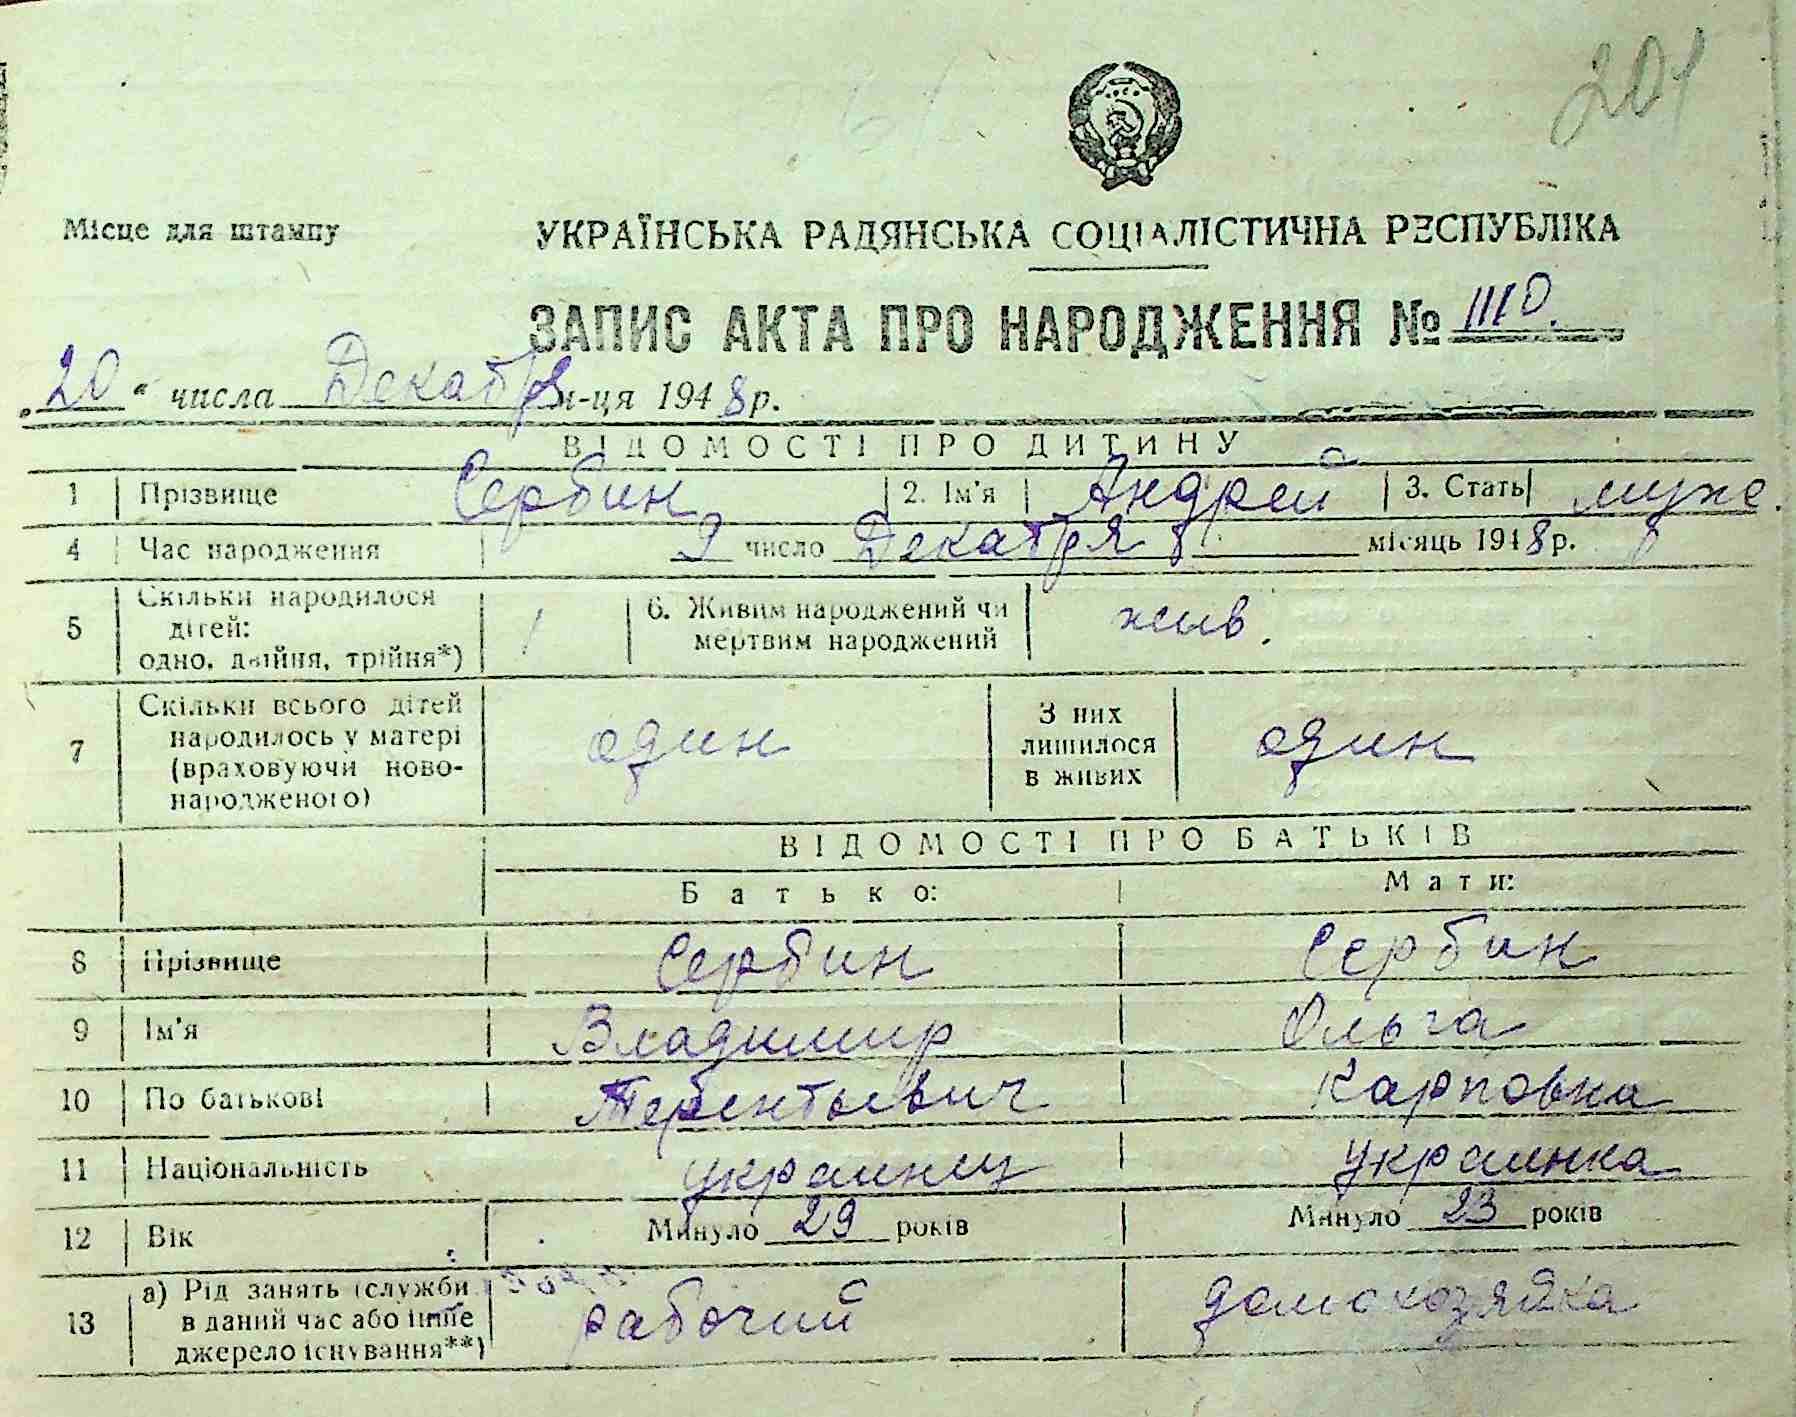 201
Місце для штампу
УКРАЇНСЬКА РАДЯНСЬКА СОЦІАЛІСТИЧНА РЕСПУБЛІКА
ЗАПИС АКТА ПРО НАРОДЖЕННЯ № 1110.
„20“ числа Декабря м-ця 1948 р.
ВІДОМОСТІ ПРО ДИТИНУ
1 Прізвище Сербин 2. Ім'я Андрей 3. Стать муж.
4 Час народження 9 число Декабря місяць 1948 р.
5 Скільки народилося дітей: одно, двійня, трійня*) 1 6. Живим народжений чи мертвим народжений жив.
7 Скільки всього дітей народилось у матері (враховуючи ново-народженого) один З них лишилося в живих один
ВІДОМОСТІ ПРО БАТЬКІВ
Батько: Мати:
8 Прізвище Сербин Сербин
9 Ім'я Владимир Ольга
10 По батькові Терентьевич Карповна
11 Національність украинец украинка
12 Вік Минуло 29 років Минуло 23 років
13 а) Рід занять (служби в даний час або інше джерело існування**) рабочий домохозяйка